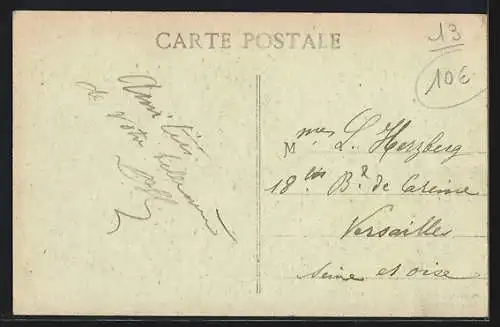 CARTE POSTALE
13
10€
Amitiés
de votre
M mes L. Herzberg
18 bis Bd de
Versailles
Seine et Oise